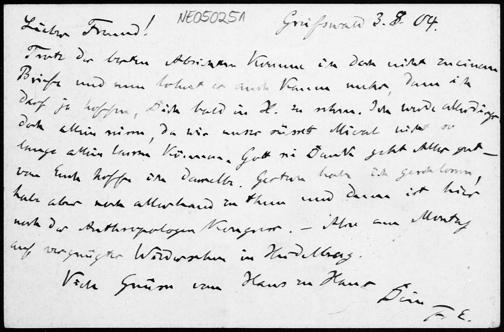 NE050251
Greifswald 3.8.04.
Lieber Freund!
Trotz der besten Absichten komme ich doch nicht zu einem
Briefe und nun lohnt es auch kaum mehr, denn ich
darf ja hoffen, Dich bald in H. zu sehen. Ich werde allerdings
doch allein reisen, da wir unser nicht so
lange allein lassen können. Gott sei Dank geht Alles gut –
von Euch hoffe ich dasselbe. Gestern habe ich geschlossen,
habe aber noch allerhand zu thun und dann ist hier
noch der Anthropologen Kongress. – Also am Montag
auf vergnügtes Wiedersehen in Heidelberg.
Viele Grüsse von Haus zu Haus
Dein
F E.